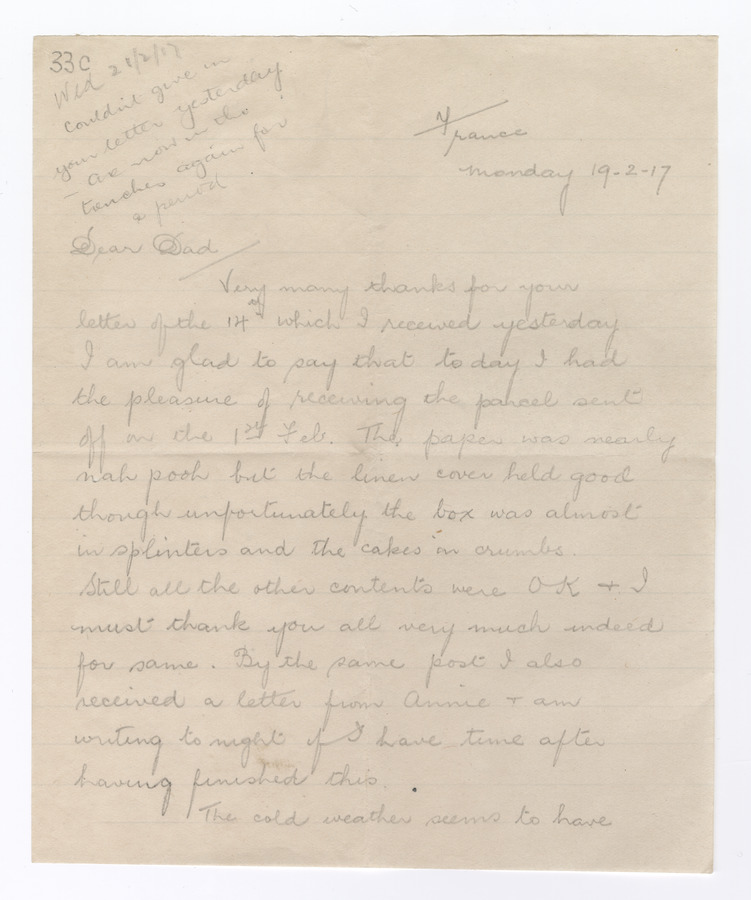 33c
Wed 21/2/17
couldn't give in
your letter yesterday
- are now in the
trenches again for
a period.
France
Monday 19-2-17
Dear Dad
Very many thanks for your
letter of the 14th which I received yesterday
I am glad to say that to day I had
the pleasure of receiving the parcel sent
off on the 1st Feb. The paper was nearly
nah pooh but the linen cover held good
though unfortunately the box was almost
in splinters and the cakes in crumbs.
Still all the other contents were OK + I
must thank you all very much indeed
for same. By the same post I also
received a letter from Annie + am
writing to night if I have time after
having finished this.
The cold weather seems to have